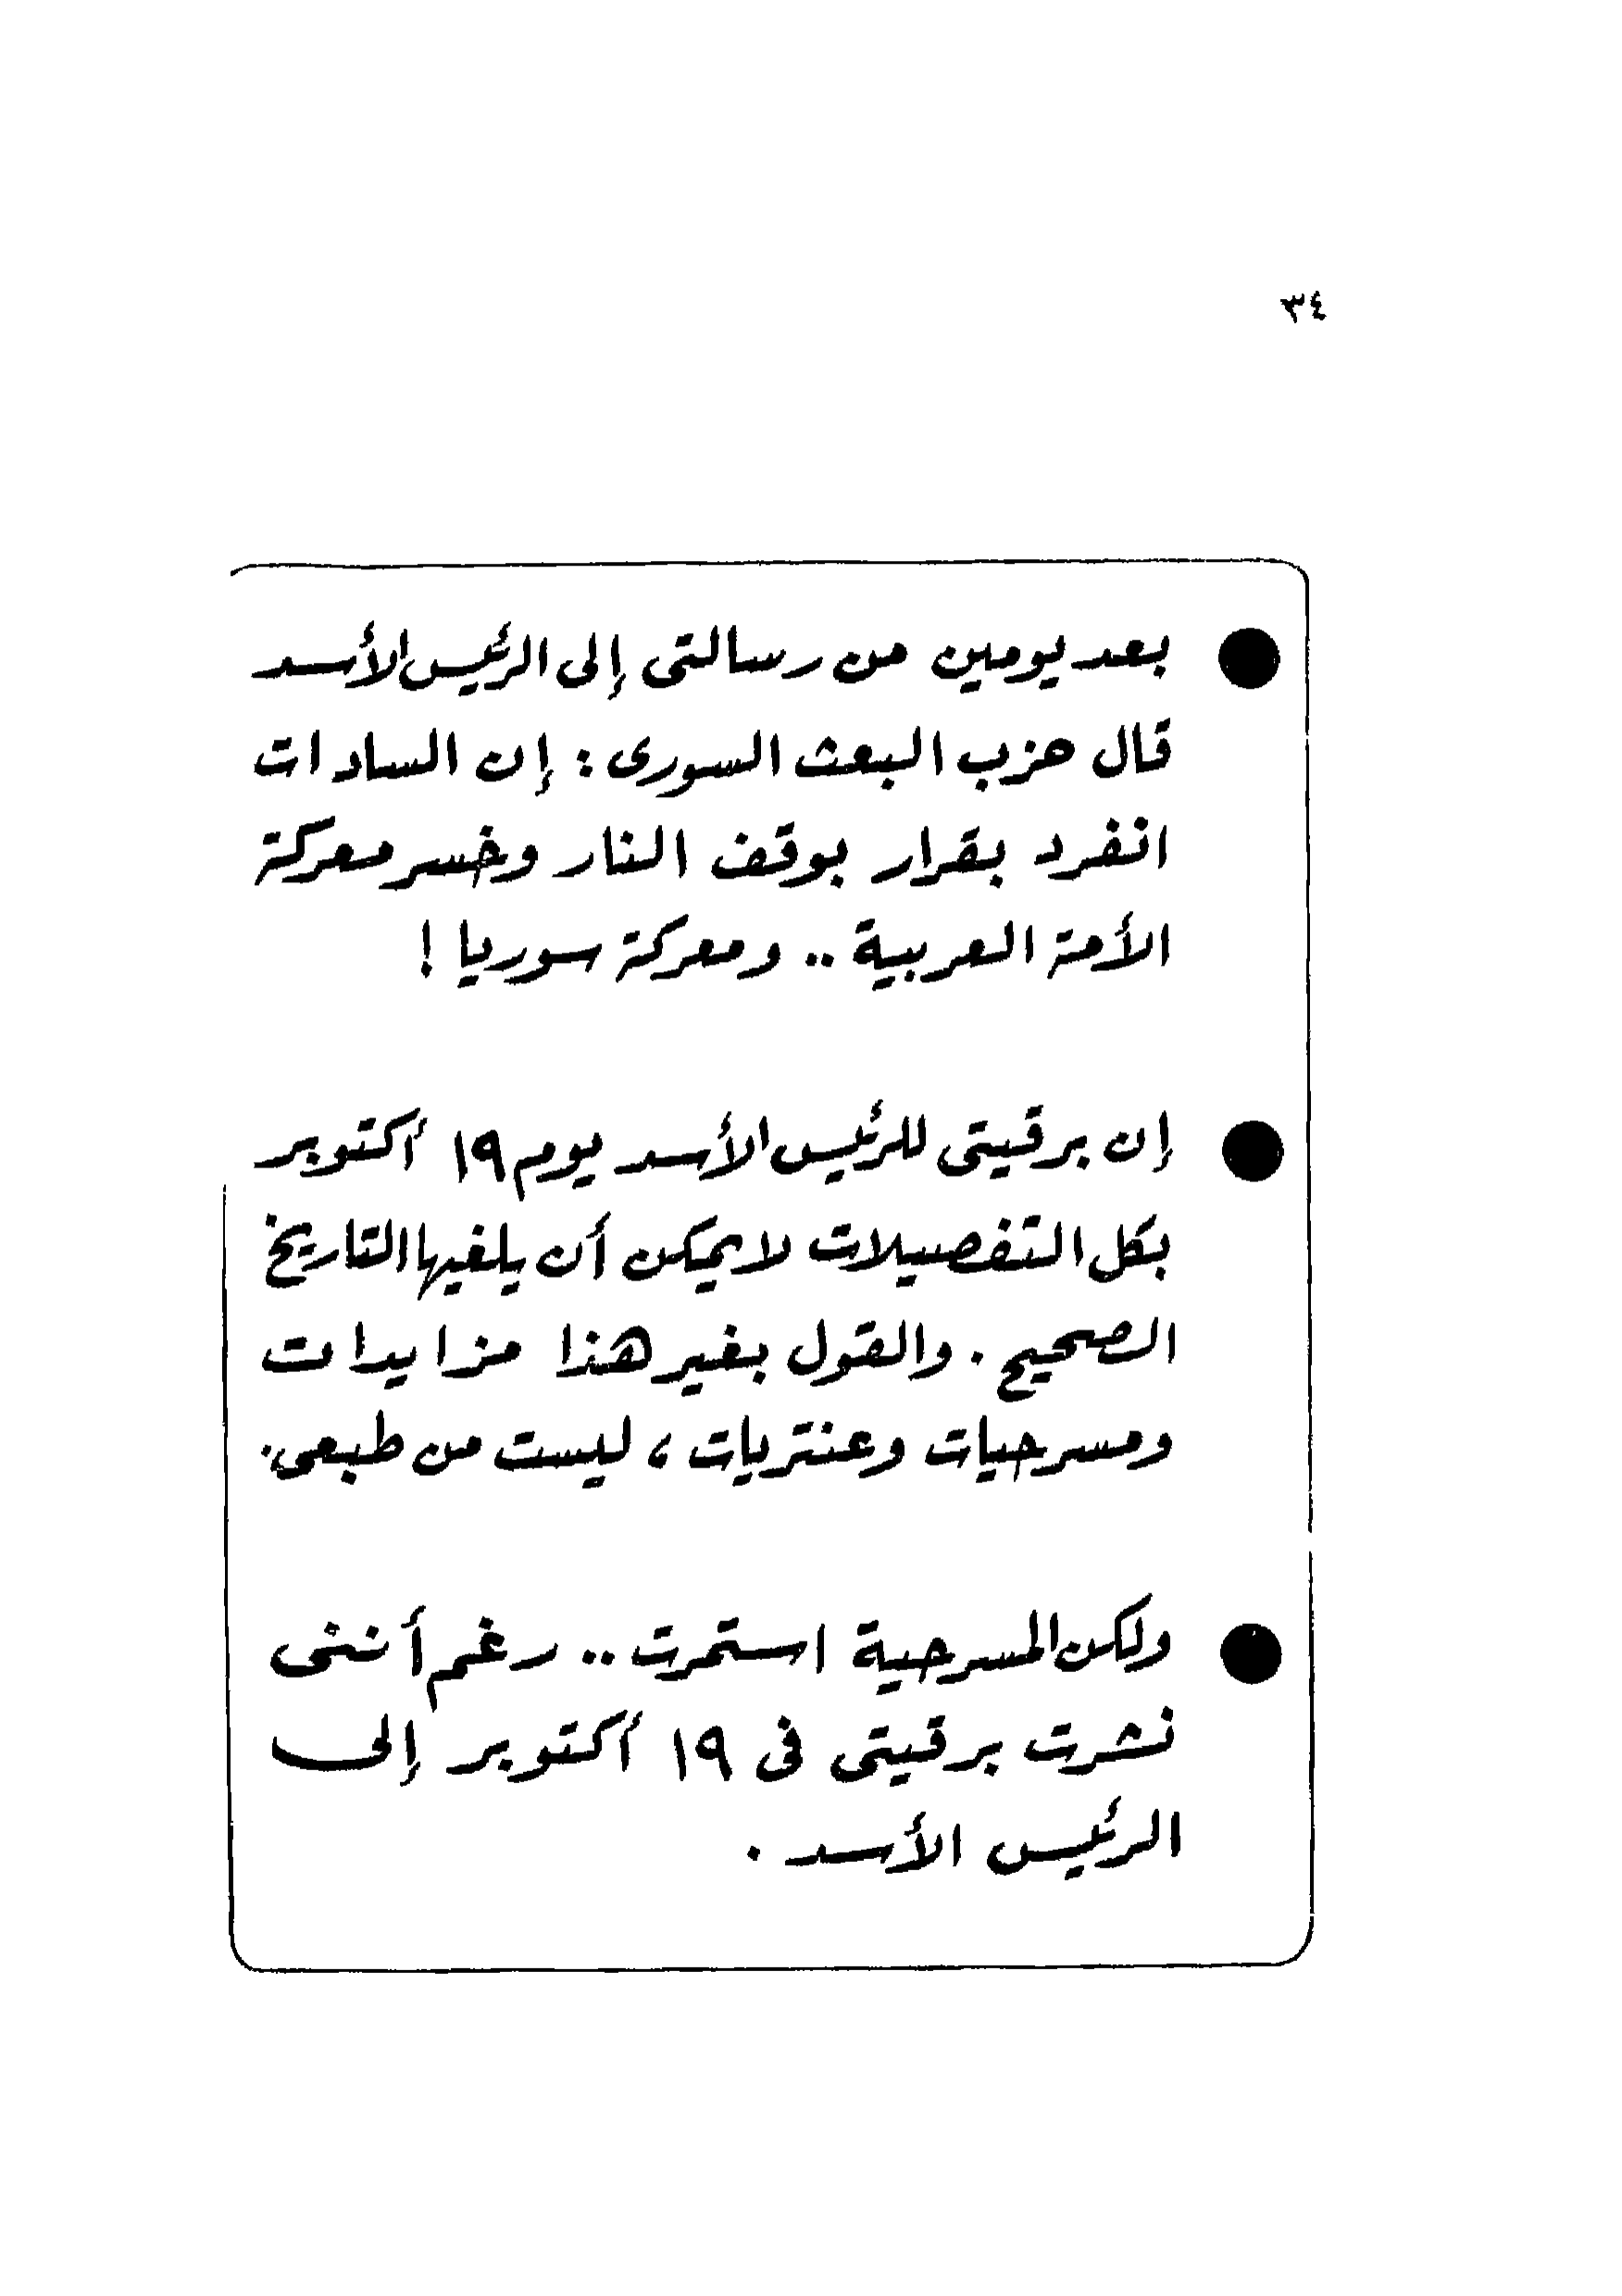 ٣٤
● بعد يومين من رسالتى إلى الرئيس الأسد
قال حزب البعث السورى : إن السادات
انفرد بقرار بوقف النار وخسر معركة
الأمة العربية .. ومعركة سوريا !
● إن برقيتى للرئيس الأسد يوم ١٩ أكتوبر
بكل التفصيلات لا يمكن أن يلغيها التاريخ
الصحيح . والقول بغير هذا مزايدات
ومسرحيات وعنتريات ، ليست من طبعى .
● ولكن المسرحية استمرت .. رغم أننى
نشرت برقيتى فى ١٩ أكتوبر إلى
الرئيس الأسد .